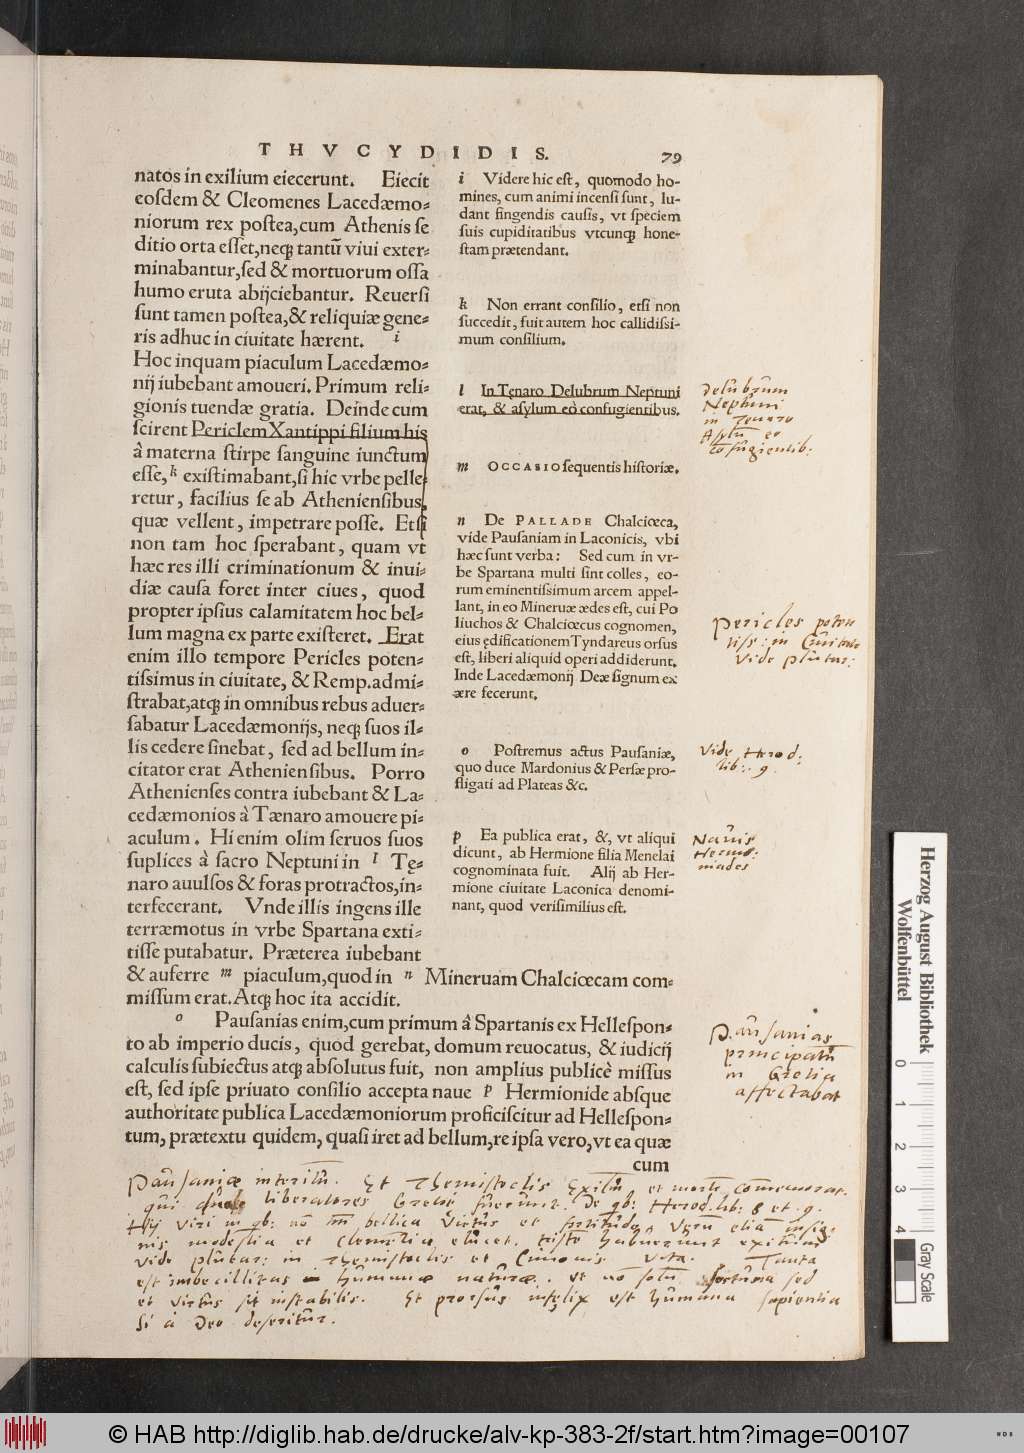 THVCYDIDIS. 79
natos in exilium eiecerunt. Eiecit
eosdem & Cleomenes Lacedæmo=
niorum rex postea, cum Athenis se
ditio orta esset, neq; tantũ viui exter=
minabantur, sed & mortuorum ossa
humo eruta abijciebantur. Reuersi
sunt tamen postea, & reliquiæ gene=
ris adhuc in ciuitate hærent. i
Hoc inquam piaculum Lacedæmo=
nij iubebant amoueri. Primum reli=
gionis tuendæ gratia. Deinde cum
scirent Periclem Xantippi filium his
â materna stirpe sanguine iunctum
esse, k existimabant, si hic vrbe pelle
retur, facilius se ab Atheniensibus,
quæ vellent, impetrare posse. Etsi
non tam hoc sperabant, quam vt
hæc res illi criminationum & inui=
diæ causa foret inter ciues, quod
propter ipsius calamitatem hoc bel=
lum magna ex parte existeret. Erat
enim illo tempore Pericles poten=
tissimus in ciuitate, & Remp. admi=
strabat, atq; in omnibus rebus aduer=
sabatur Lacedæmonijs, neq; suos il=
lis cedere sinebat, sed ad bellum in=
citator erat Atheniensibus. Porro
Athenienses contra iubebant & La=
cedæmonios à Tænaro amouere pi=
aculum. Hi enim olim seruos suos
suplices à sacro Neptuni in l Tę=
naro auulsos & foras protractos, in=
terfecerant. Vnde illis ingens ille
terræmotus in vrbe Spartana exti=
tisse putabatur. Præterea iubebant
& auferre m piaculum, quod in n Mineruam Chalciœcam com=
missum erat. Atq; hoc ita accidit.
o Pausanias enim, cum primum â Spartanis ex Hellespon=
to ab imperio ducis, quod gerebat, domum reuocatus, & iudicij
calculis subiectus atq; absolutus fuit, non amplius publicè missus
est, sed ipse priuato consilio accepta naue p Hermionide absque
authoritate publica Lacedæmoniorum proficiscitur ad Hellespon=
tum, prætextu quidem, quasi iret ad bellum, re ipsa vero, vt ea quæ
cum
i Videre hic est, quomodo ho-
mines, cum animi incensi sunt, lu-
dant fingendis causis, vt speciem
suis cupiditatibus vtcunq; hone-
stam prætendant.
k Non errant consilio, etsi non
succedit, fuit autem hoc callidissi-
mum consilium.
l In Tęnaro Delubrum Neptuni
erat, & asylum eò confugientibus.
m OCCASIO sequentis historiæ.
n De PALLADE Chalciœca,
vide Pausaniam in Laconicis, vbi
hæc sunt verba: Sed cum in vr-
be Spartana multi sint colles, eo-
rum eminentissimum arcem appel-
lant, in eo Mineruæ ædes est, cui Po
liuchos & Chalciœcus cognomen,
eius ędificationem Tyndareus orsus
est, liberi aliquid operi addiderunt.
Inde Lacedæmonij Deæ signum ex
ære fecerunt.
o Postremus actus Pausaniæ,
quo duce Mardonius & Persæ pro-
fligati ad Plateas &c.
p Ea publica erat, &, vt aliqui
dicunt, ab Hermione filia Menelai
cognominata fuit. Alij ab Her-
mione ciuitate Laconica denomi-
nant, quod verisimilius est.
Delubrum
Neptuni
in Tenaro
Asylũ eo
cõfugientib:
Pericles poten
tiss: in Ciuitate
vide plutar:
Vide Herod:
lib: 9
Nauis
Hermio:
niades
Pausanias
principatũ
in Grecia
affectabat
Pausaniæ interitũ. Et Themistoclis Exiliũ et mortẽ commemorat.
qui duo liberatores Greciæ fuerunt. De qb: Herod. lib: 8 et 9.
Hij viri in qb: nõ tm̃ bellica virtus et fortitudo, verũ etiã insig:
nis modestia et Clementia elucet. tristẽ habuerunt exitum
vide plutar: in Themistoclis et Cimonis vita. Tanta
est imbecillitas humanæ naturæ. ut nõ solũ fortuna sed
et virtus sit instabilis. Et prorsus infęlix est humana sapientia
si a Deo deseritur.
Herzog August Bibliothek
Wolfenbüttel
0 1 2 3 4
Gray Scale
© HAB http://diglib.hab.de/drucke/alv-kp-383-2f/start.htm?image=00107